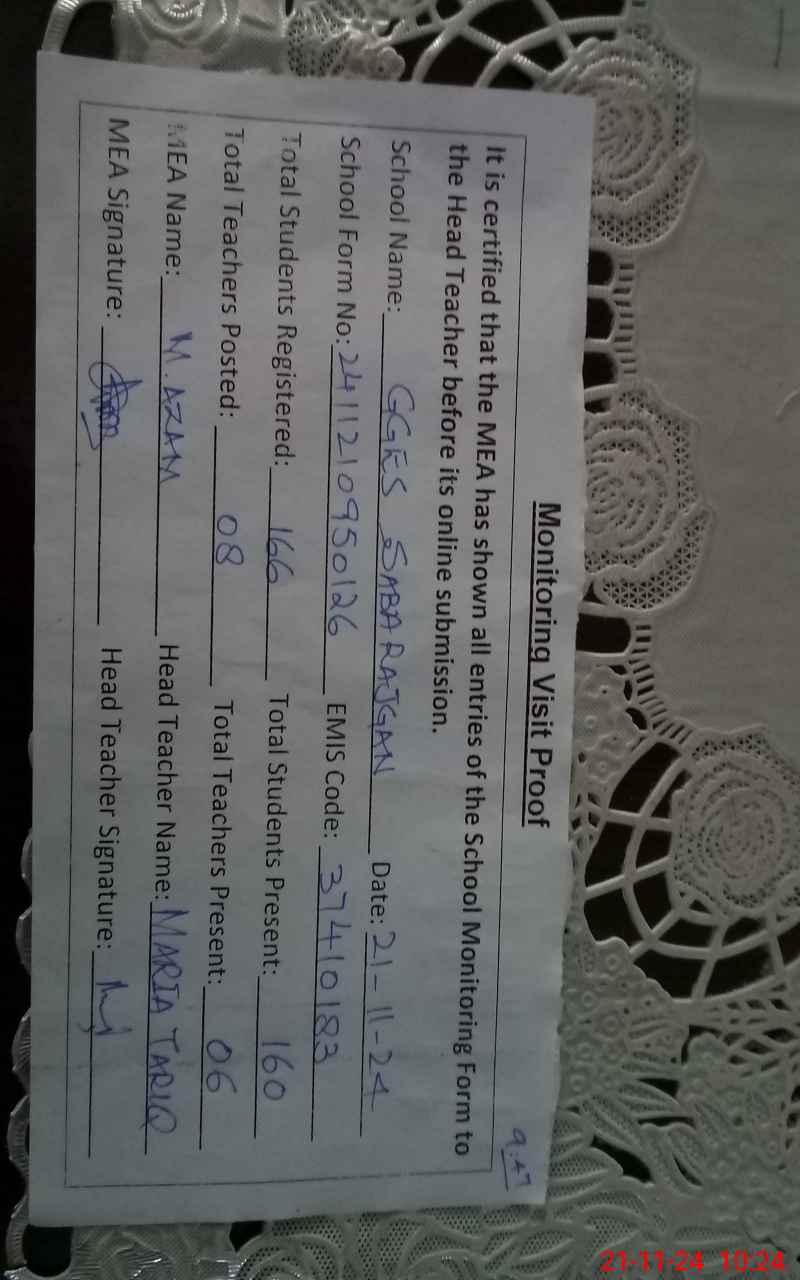 Monitoring Visit Proof
It is certified that the MEA has shown all entries of the School Monitoring Form to
the Head Teacher before its online submission.
School Name: GGES SABA RAJGAN Date: 21-11-24
School Form No: 2411210950126 EMIS Code: 37410183
Total Students Registered: 166 Total Students Present: 160
Total Teachers Posted: 08 Total Teachers Present: 06
MEA Name: M. AZAM Head Teacher Name: MARIA TARIQ
MEA Signature: Head Teacher Signature:
21-11-24 10:24